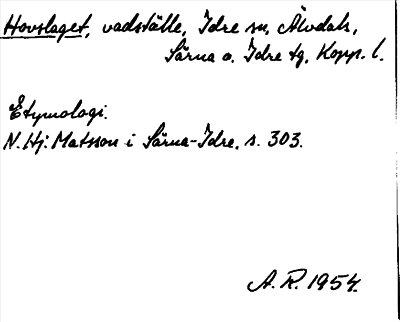 Hovslaget, vadställe, Idre sn, Älvdals,
Särna o. Idre tg, Kopp. l.
Etymologi.
N. Hj. Matsson i Särna-Idre, s. 303.
A. R. 1954.